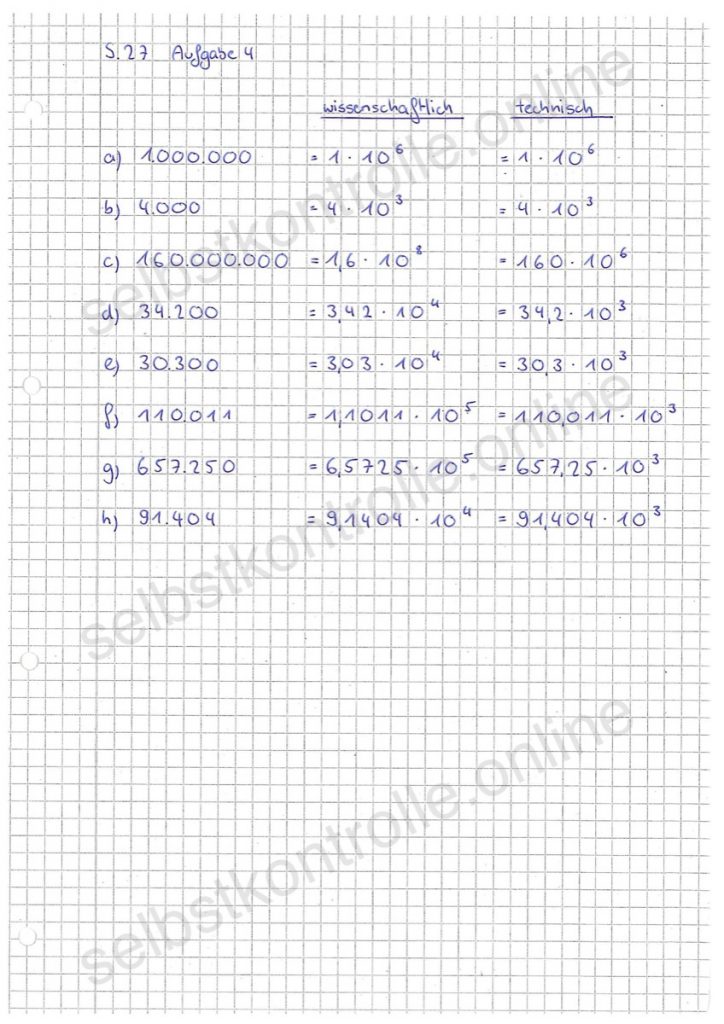 S. 27 Aufgabe 4
wissenschaftlich technisch
a) 1.000.000 = 1 · 10⁶ = 1 · 10⁶
b) 4.000 = 4 · 10³ = 4 · 10³
c) 160.000.000 = 1,6 · 10⁸ = 160 · 10⁶
d) 34.200 = 3,42 · 10⁴ = 34,2 · 10³
e) 30.300 = 3,03 · 10⁴ = 30,3 · 10³
f) 110.011 = 1,1011 · 10⁵ = 110,011 · 10³
g) 657.250 = 6,5725 · 10⁵ = 657,25 · 10³
h) 91.404 = 9,1404 · 10⁴ = 91,404 · 10³
selbstkontrolle.online
selbstkontrolle.online
selbstkontrolle.online